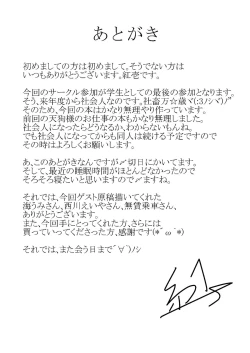 あとがき
初めましての方は初めまして。そうでない方は
いつもありがとうございます。紅壱です。
今回のサークル参加が学生としての最後の参加となります。
そう、来年度から社会人なのです。社畜万歳ヾ(:3ノシヾ)ﾉ"
そのため、今回の本はかなり無理やり作っています。
前回の天狗様のお仕事の本もかなり無理しました。
社会人になったらどうなるか、わからないもんね。
でも社会人になってからも同人は続ける予定ですので
その時はよろしくお願いします。
あ、このあとがきなんですが〆切日にかいてます。
そして、最近の睡眠時間がほとんどなかったので
そろそろ寝たいと思いますので〆ますね。
それでは、今回ゲスト原稿描いてくれた
海うみさん、西川えいやさん、無賃乗車さん、
ありがとうございます。
また、今回手にとってくれた方、さらには
買っていってくださった方、感謝です(*´ω｀*)
それでは、また会う日まで´∀`)ﾉｼ